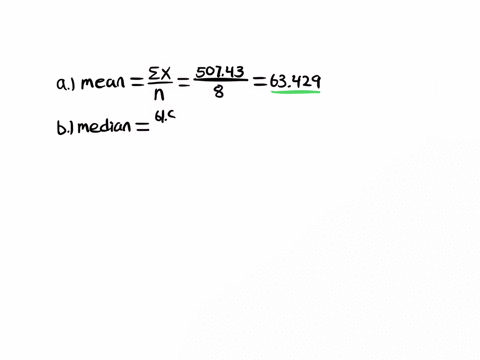 a.) mean = ΣX/n = 507.43/8 = 63.429
b.) median =